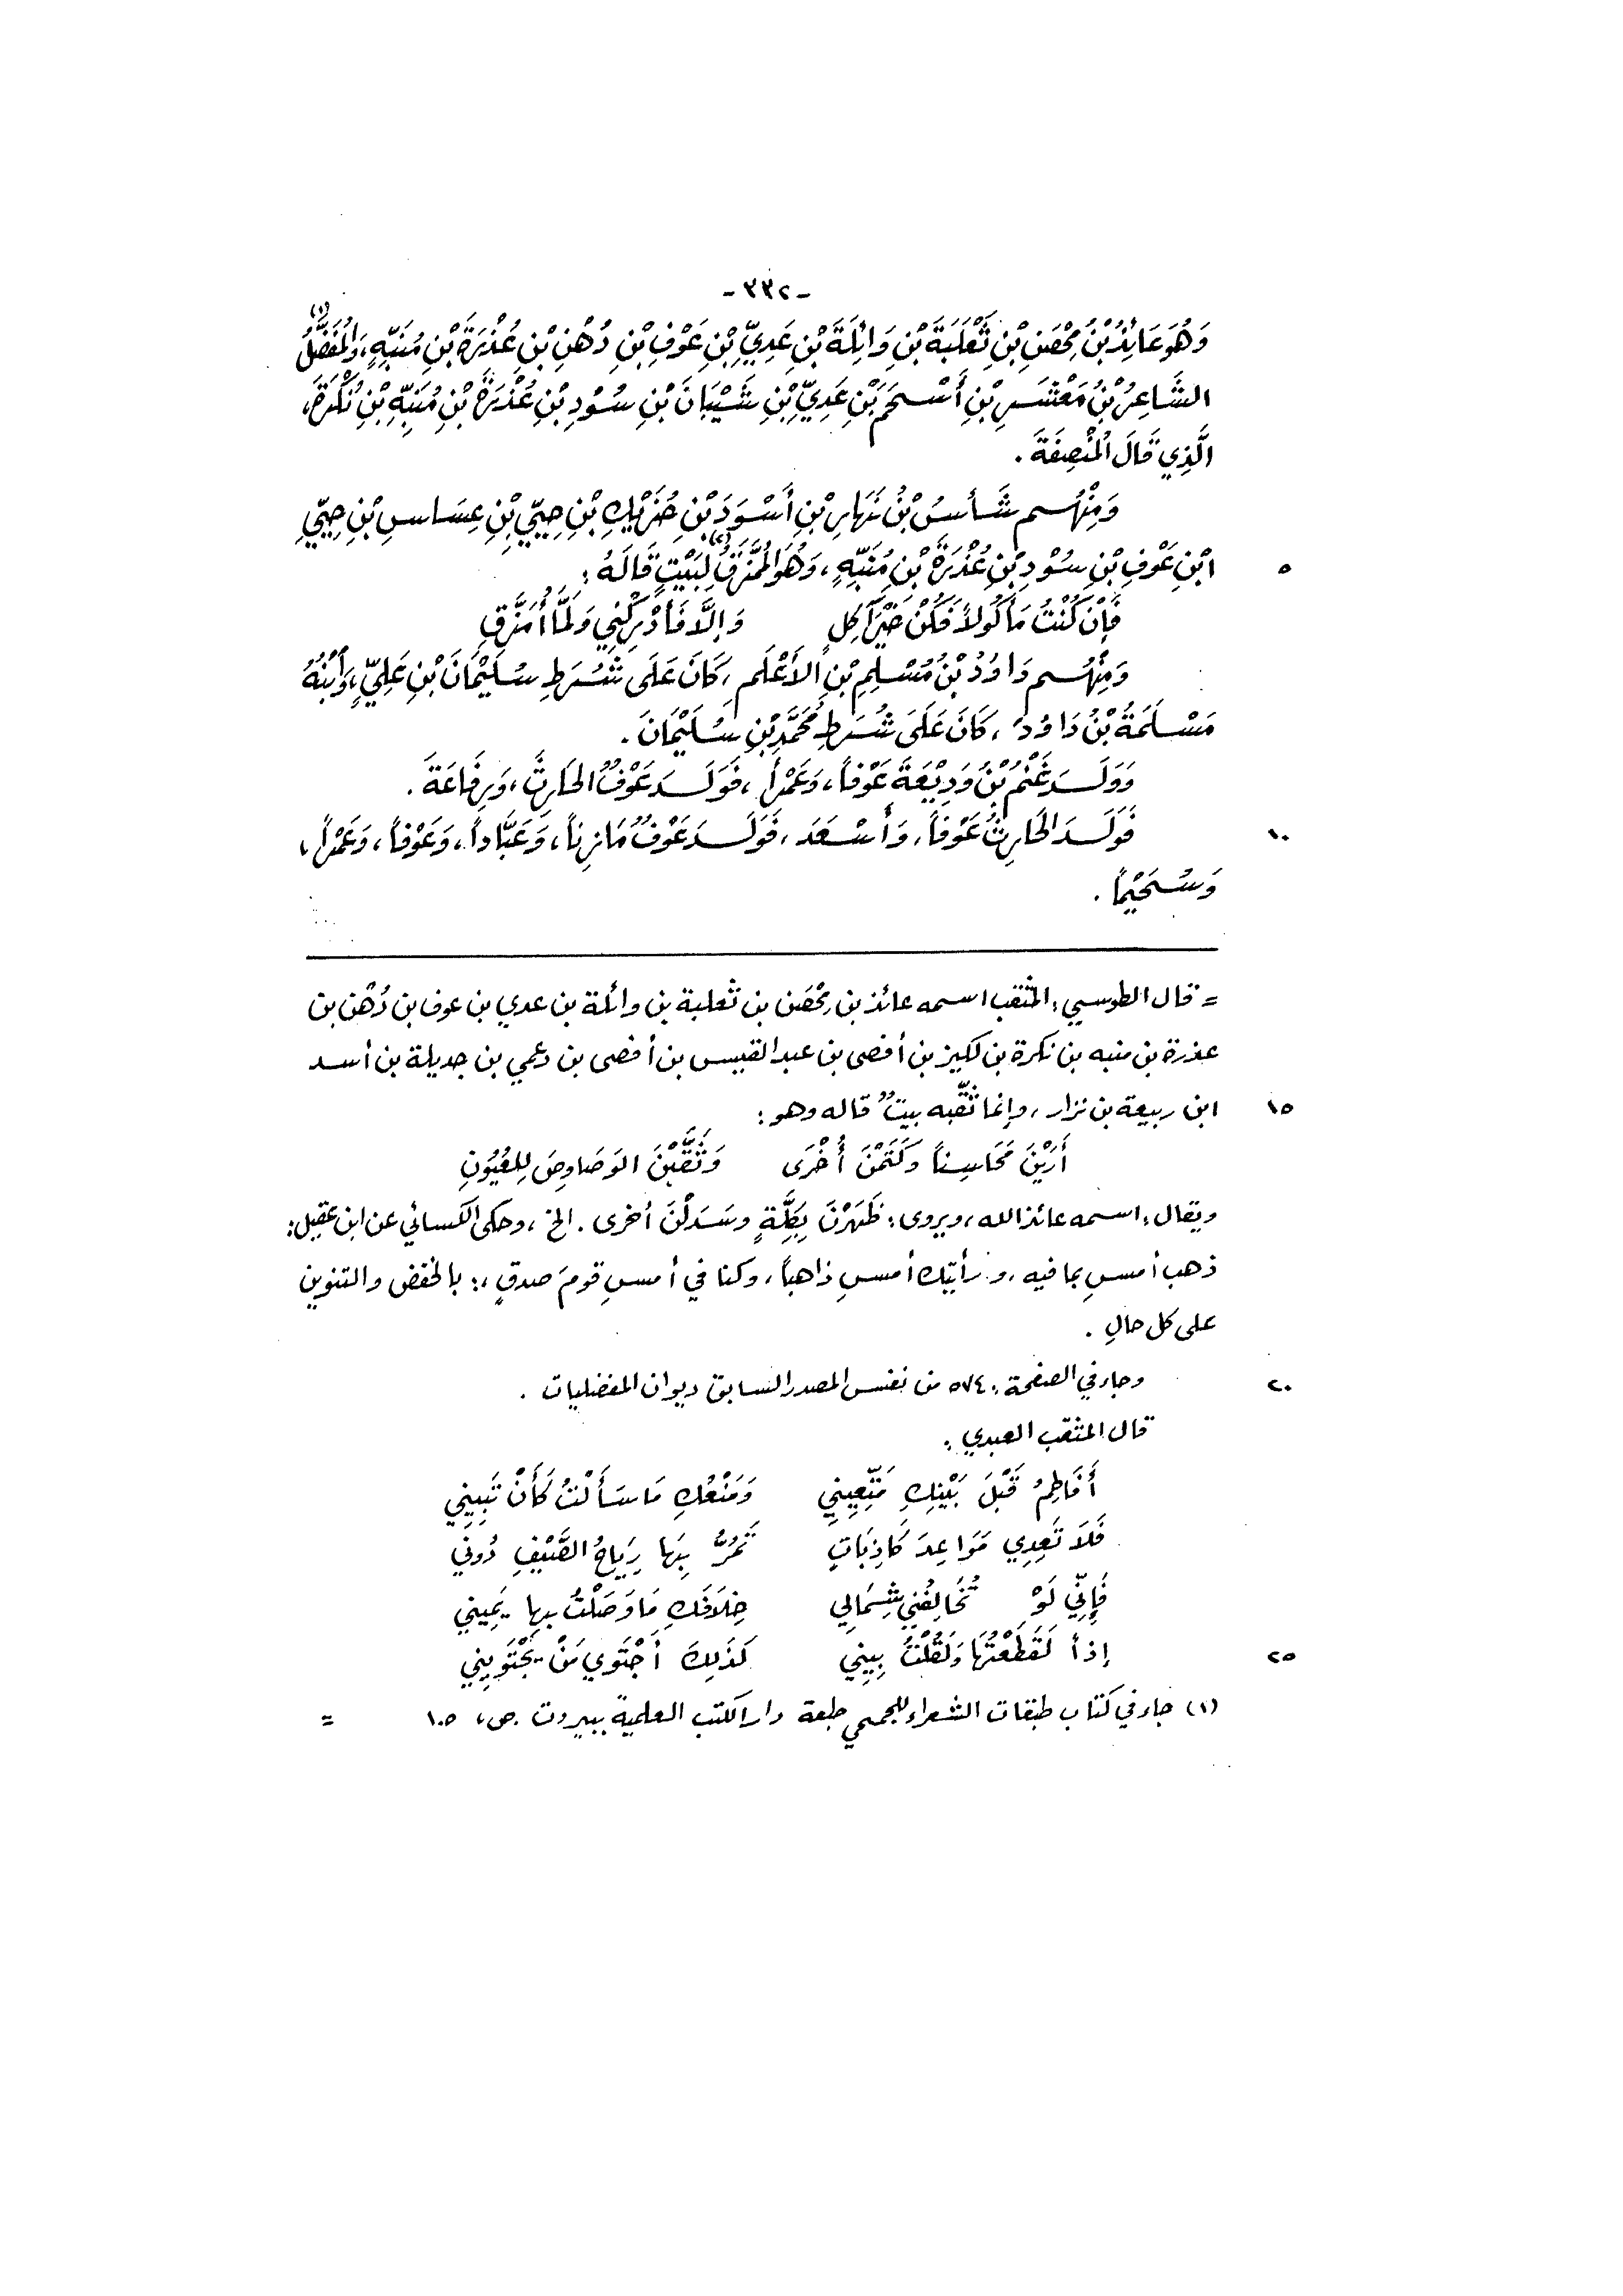 -٣٣٢-
وَهُوَ عَائِذُ بْنُ مِحْصَنِ بْنِ ثَعْلَبَةَ بْنِ وَائِلَةَ بْنِ عَدِيِّ بْنِ عَوْفِ بْنِ دُهْنِ بْنِ عُذْرَةَ بْنِ مُنَبِّهٍ، وَالمُفَضَّلُ (١)
الشَّاعِرُ بْنُ مَعْشَرِ بْنِ أَسْحَمَ بْنِ عَدِيِّ بْنِ شَيْبَانَ بْنِ سُوْدِ بْنِ عُذْرَةَ بْنِ مُنَبِّهِ بْنِ نُكْرَةَ،
الَّذِي قَالَ المُنْصِفَةَ .
وَمِنْهُم شَأْسُ بْنُ نَهَارِ بْنِ أَسْوَدَ بْنِ حُزَيْكِ بْنِ حِيَيِّ بْنِ عِسَاسِ بْنِ حِيَيِّ
٥ ابْنِ عَوْفِ بْنِ سُوْدِ بْنِ عُذْرَةَ بْنِ مُنَبِّهٍ، وَهُوَ المُمَزَّقُ (٢) لِبَيْتٍ قَالَهُ :
فَإِنْ كُنْتُ مَأْكُولاً فَكُنْ خَيْرَ آكِلٍ وَإِلَّا فَأَدْرِكْنِي وَلَمَّا أُمَزَّقِ
وَمِنْهُم دَاوُدُ بْنُ مُسْلِمِ بْنِ الأَعْلَمِ، كَانَ عَلَى شُرَطِ سُلَيْمَانَ بْنِ عَلِيٍّ، وَابْنُهُ
مَسْلَمَةُ بْنُ دَاوُدَ، كَانَ عَلَى شُرَطِ مُحَمَّدِ بْنِ سُلَيْمَانَ .
وَوَلَدَ غَنْمُ بْنُ وَدِيْعَةَ عَوْفاً، وَعَمْراً، فَوَلَدَ عَوْفٌ الحَارِثَ، وَرِفَاعَةَ .
١٠ فَوَلَدَ الحَارِثُ عَوْفاً، وَأَسْعَدَ، فَوَلَدَ عَوْفٌ مَازِناً، وَعَبَّاداً، وَعَوْفاً، وَعَمْراً،
وَسُحَيْماً .
= قال الطوسي: المثقب اسمه عائذ بن مِحْصَن بن ثعلبة بن وائلة بن عدي بن عوف بن دُهْن بن
عذرة بن منبه بن نكرة بن لكيز بن أفصى بن عبد القيس بن أفصى بن دعمي بن جديلة بن أسد
١٥ ابن ربيعة بن نزار، وإنما ثقّبه بيتٌ قاله وهو :
أَرَيْنَ مَحَاسِناً وكَتَمْنَ أُخْرَى وَثَقَّبْنَ الوَصَاوِصَ لِلعُيُونِ
ويقال: اسمه عائذ الله، ويروى: ظَهَرْنَ بِكِلَّةٍ وسَدَلْنَ أخرى . الخ، وحكى الكسائي عن ابن عقيل:
ذهب أمسِ بما فيه، ورأيتك أمسِ ذاهباً، وكنا في أمسِ قومَ صدقٍ،: بالخفض والتنوين
على كل حالٍ .
٢٠ وجاء في الصفحة: ٥٧٤ من نفس المصدر السابق ديوان المفضليات .
قال المثقب العبدي :
أَفَاطِمُ قَبْلَ بَيْنِكِ مَتِّعِينِي وَمَنْعُكِ مَا سَأَلْتُ كَأَنْ تَبِينِي
فَلَا تَعِدِي مَوَاعِدَ كَاذِبَاتٍ تَمُرُّ بِهَا رِيَاحُ الصَّيْفِ دُونِي
فَإِنِّي لَوْ تُخَالِفُنِي شِمَالِي خِلَافَكِ مَا وَصَلْتُ بِهِا يَمِينِي
٢٥ إذاً لَقَطَعْتُهَا وَلَقُلْتُ بِينِي كَذَلِكَ أَجْتَوِي مَنْ يَجْتَوِينِي
(١) جاء في كتاب طبقات الشعراء للجمحي طبعة دار الكتب العلمية ببيروت . ص، ١٠٥ =